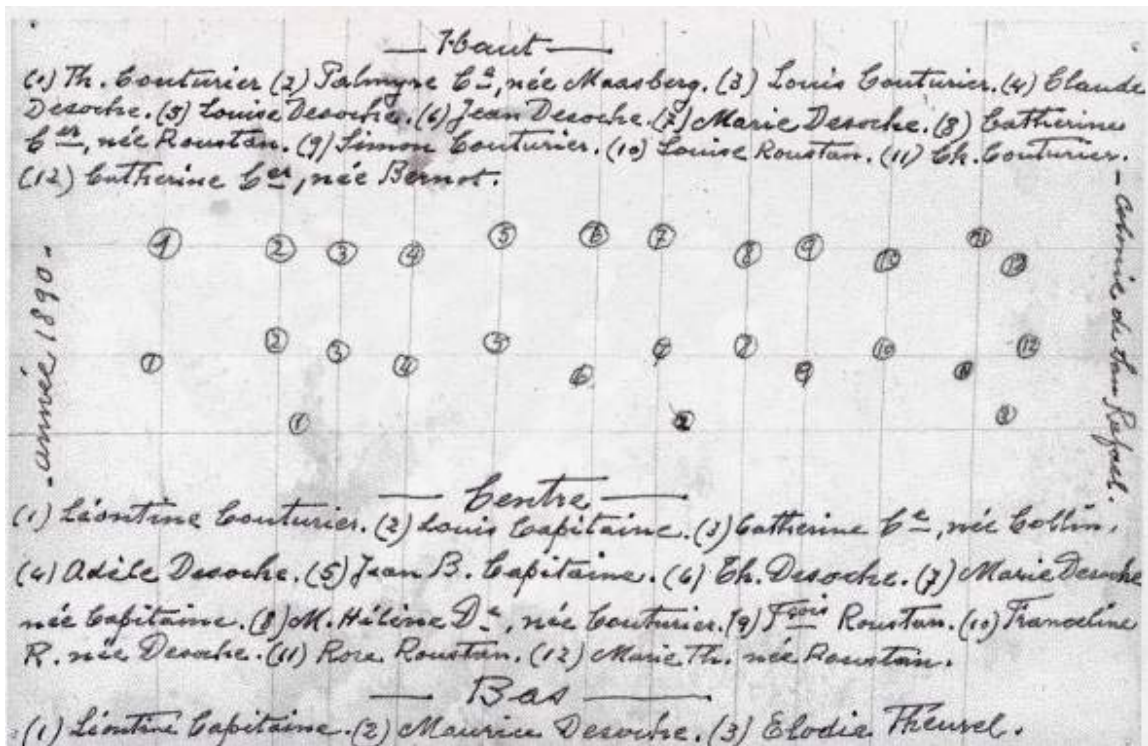 — Haut —
(1) Th. Couturier (2) Palmyre Cᵉ, née Maasberg. (3) Louis Couturier. (4) Claude
Desoche. (5) Louise Desoche. (6) Jean Desoche. (7) Marie Desoche. (8) Catherine
Cᵉʳ, née Roustan. (9) Simon Couturier. (10) Louise Roustan. (11) Ch. Couturier.
(12) Catherine Cᵉʳ, née Bernot.
- année 1890 -
- Colonie de San Rafael.
1 2 3 4 5 6 7 8 9 10 11 12
1 2 3 4 5 6 7 8 9 10 11 12
1 2 3
— Centre —
(1) Léontine Couturier. (2) Louis Capitaine. (3) Catherine Cᵉ, née Collin.
(4) Adèle Desoche. (5) Jean B. Capitaine. (6) Th. Desoche. (7) Marie Desoche
née Capitaine. (8) M. Hélène Dᵉ, née Couturier. (9) Fçois Roustan. (10) Franceline
R. née Desoche. (11) Rose Roustan. (12) Marie Th. née Roustan.
— Bas —
(1) Léontine Capitaine. (2) Maurice Desoche. (3) Elodie Theurel.